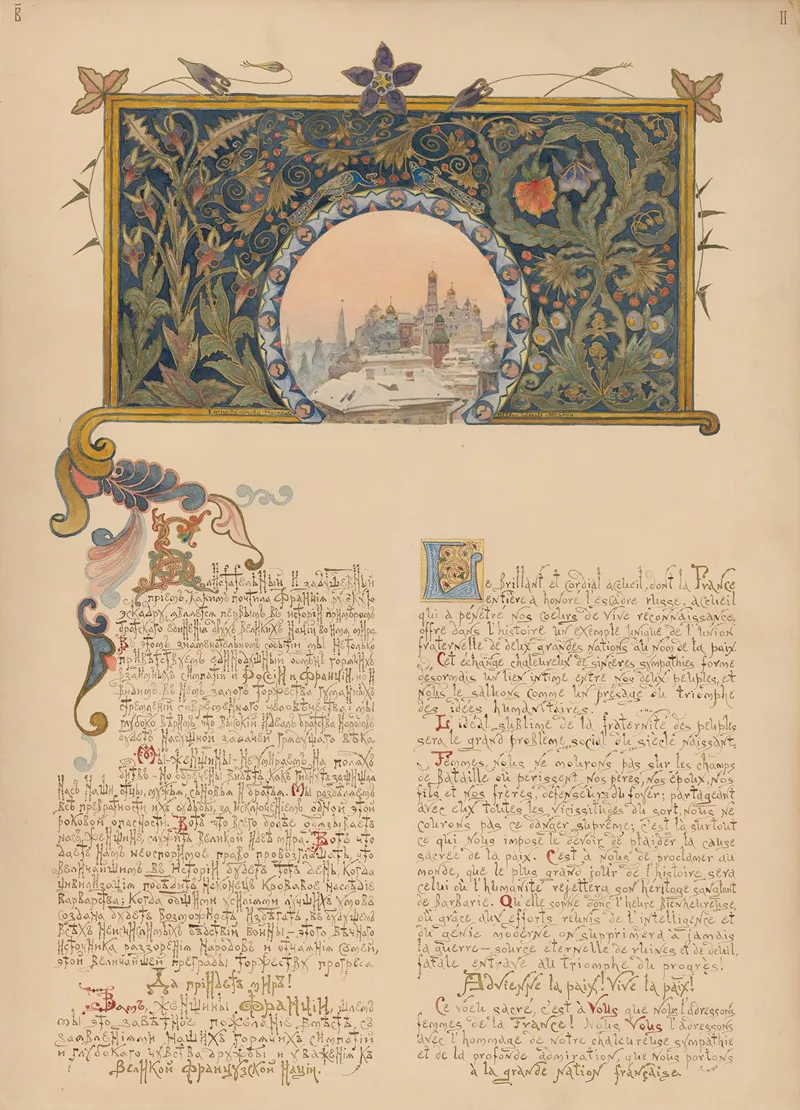 В
II
Блистательный и задушевный
прiемъ, какимъ почтила Францiя русскую
эскадру, является первымъ въ исторiи примѣромъ
братскаго единенiя двухъ великихъ нацiй во имя мира.
Въ этомъ знаменательномъ событiи мы не только
привѣтствуемъ единодушный обмѣнъ горячихъ
взаимныхъ симпатiй Россiи и Францiи, но и
видимъ въ немъ залогъ торжества гуманныхъ
стремленiй современнаго человѣчества: мы
глубоко вѣримъ, что высокiй идеалъ братства народовъ
будетъ насущной задачей грядущаго вѣка.
Мы-женщины- не умираемъ на поляхъ
битвъ- но обречены видѣть, какъ гибнутъ защищая
насъ наши отцы, мужья, сыновья и братья. Мы раздѣляемъ
всѣ превратности ихъ судьбы, за исключенiемъ одной этой
роковой опасности. Вотъ что всего болѣе обязываетъ
насъ, женщинъ, служить великой идеѣ мира. Вотъ что
даетъ намъ неоспоримое право провозглашать, что
величайшимъ въ исторiи будетъ тотъ день, когда
цивилизацiя побѣдитъ наконецъ кровавое наслѣдiе
варварства; когда общими усилiями лучшихъ умовъ
создана будетъ возможность избѣгать, въ будущемъ
всѣхъ неисчислимыхъ бѣдствiй войны,-этого вѣчнаго
источника раззоренiя народовъ и отчаянiя семей,
этой величайшей преграды торжеству прогреса.
Да прiидетъ миръ!
Вамъ, женщины Францiи, шлемъ
мы это завѣтное пожеланiе вмѣстѣ съ
заявленiями нашихъ горячихъ симпатiй
и глубокаго чувства дружбы и уваженiя къ
великой французской нацiи.
Le brillant et cordial accueil, dont la France
entière a honoré l'escadre russe, accueil
qui a pénétré nos coeurs de vive reconnaissance,
offre dans l'histoire un exemple unique de l'union
fraternelle de deux grandes nations au nom de la paix.
Cet échange chaleureux de sincères sympathies forme
désormais un lien intime entre nos deux peuples, et
nous le saluons comme un présage du triomphe
des idées humanitaires.
L'idéal sublime de la fraternité des peuples
sera le grand problème social du siècle naissant.
Femmes, nous ne mourons pas sur les champs
de bataille où périssent nos pères, nos époux, nos
fils et nos frères, défenseurs du foyer; partageant
avec eux toutes les vicissitudes du sort, nous ne
courons pas ce danger suprême; c'est là surtout
ce qui nous impose le devoir de plaider la cause
sacrée de la paix. C'est à nous de proclamer au
monde, que le plus grand jour de l'histoire sera
celui où l'humanité rejettera son héritage sanglant
de barbarie. Qu'elle sonne donc l'heure bienheureuse,
où grâce aux efforts réunis de l'intelligence et
du génie moderne on supprimera à jamais
la guerre – source éternelle de ruines et de deuil,
fatale entrave au triomphe du progrès.
Advienne la paix! Vive la paix!
Ce voeu sacré, c'est à Vous que nous l'adressons,
femmes de la France! Nous Vous l'adressons
avec l'hommage de notre chaleureuse sympathie
et de la profonde admiration, que nous portons
à la grande nation française.